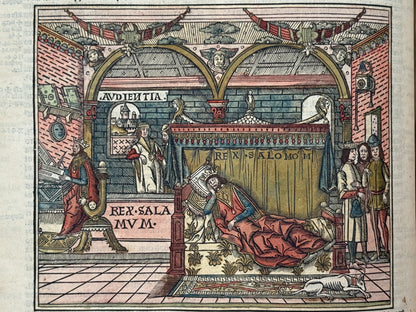 AVDIENTIA
REX·SALOMOH
REX·SALA
MVM·